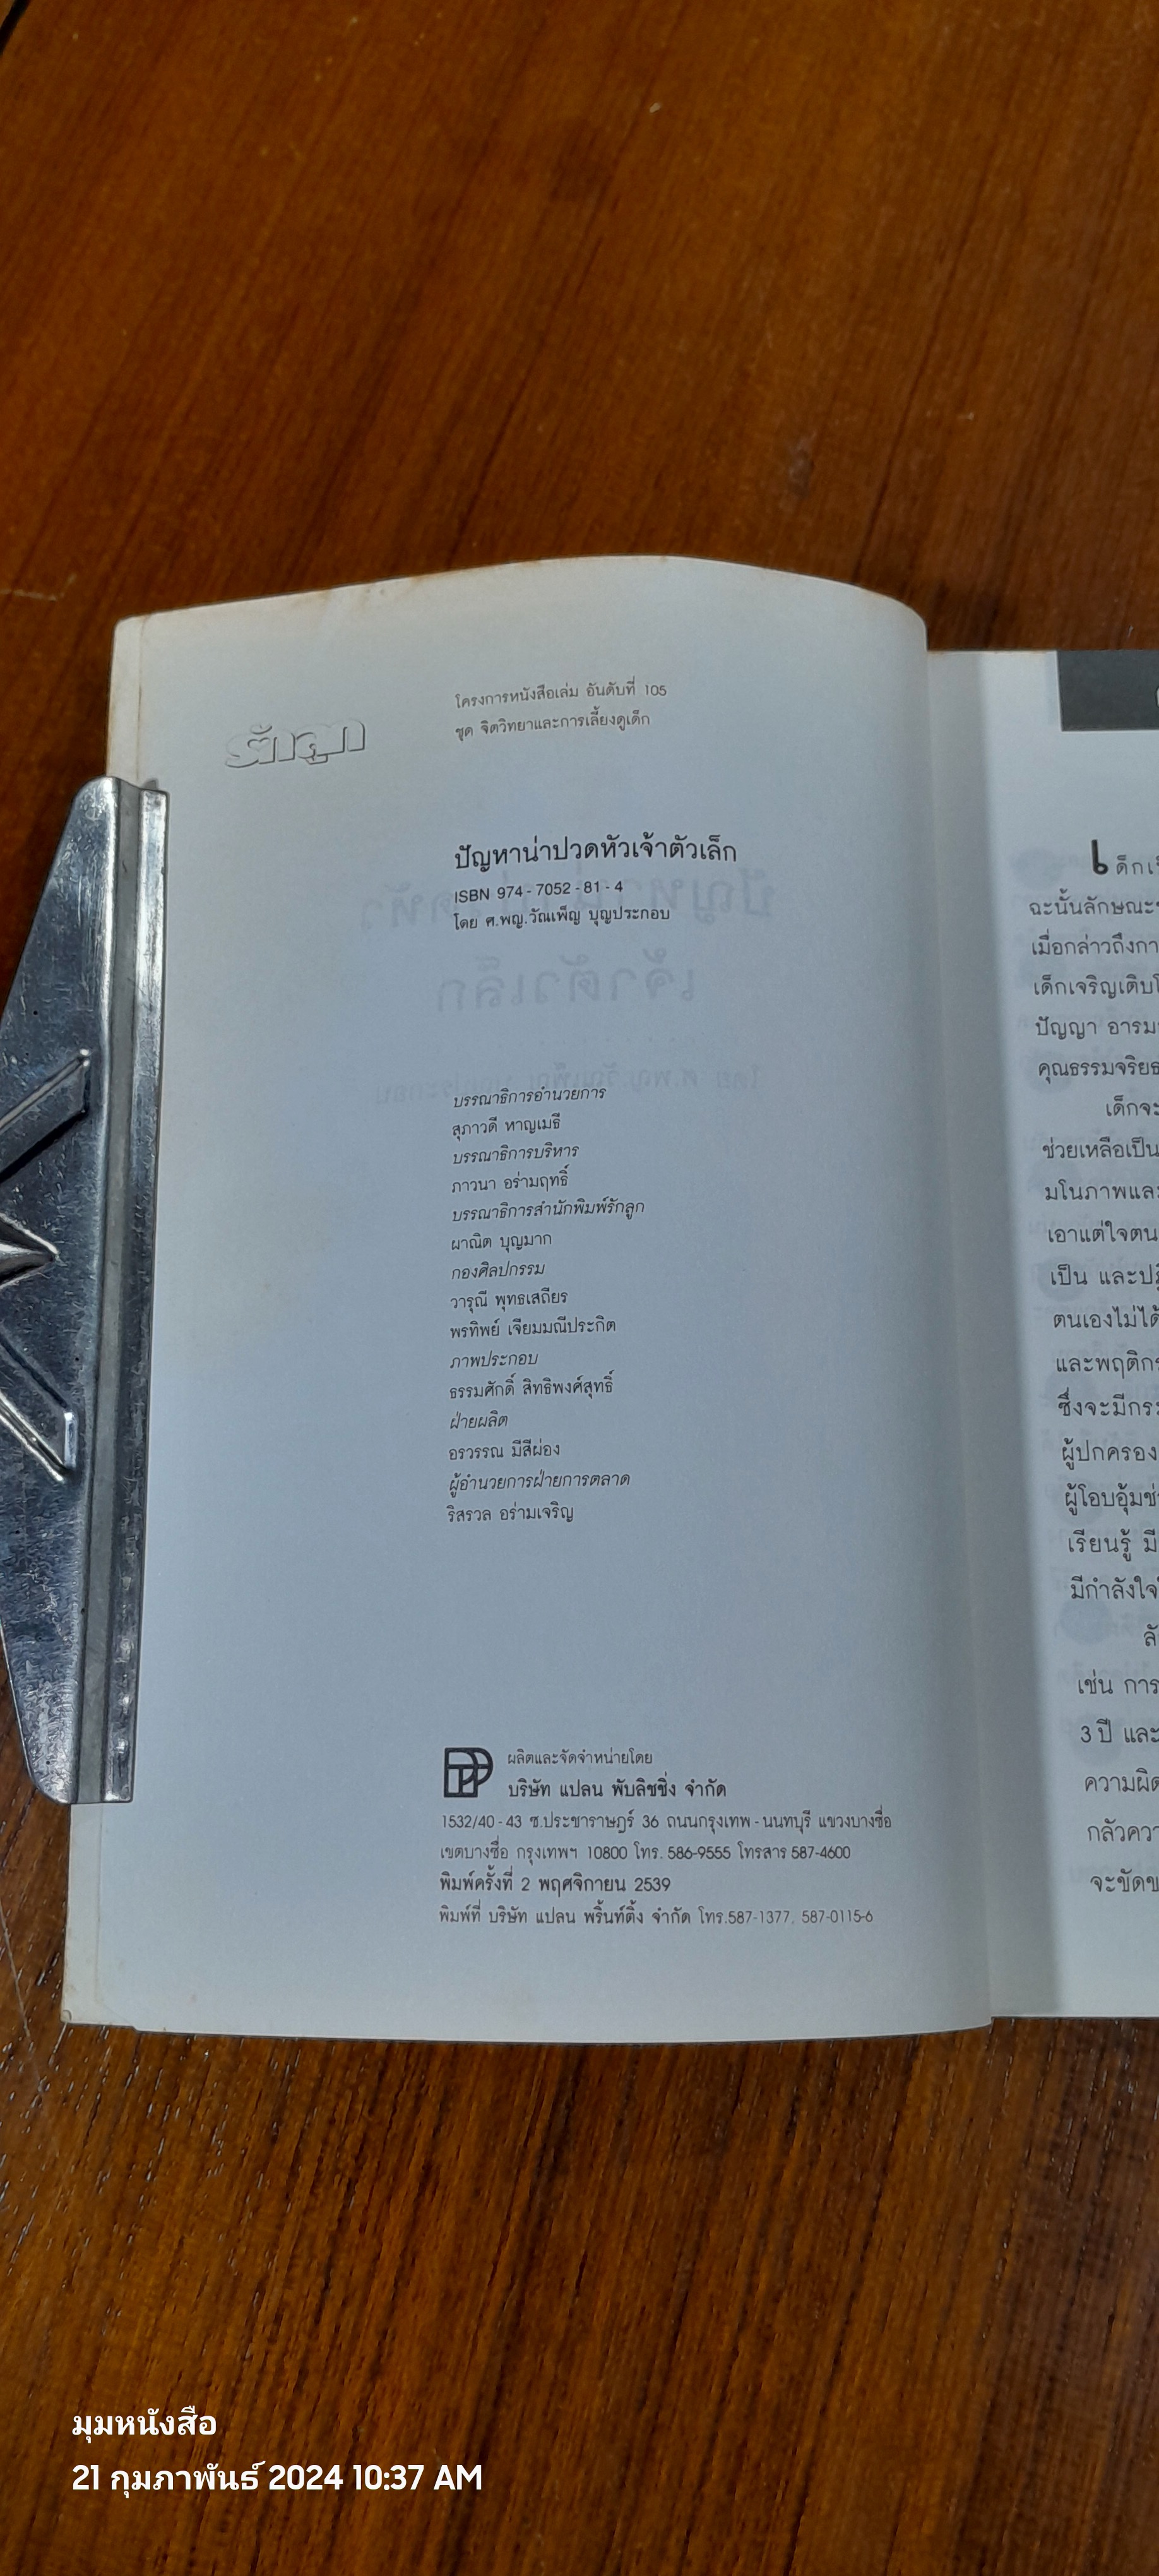 รักลูก
โครงการหนังสือเล่ม อันดับที่ 105
ชุด จิตวิทยาและการเลี้ยงดูเด็ก
ปัญหาน่าปวดหัวเจ้าตัวเล็ก
ISBN 974-7052-81-4
โดย ศ.พญ.วัณเพ็ญ บุญประกอบ
บรรณาธิการอำนวยการ
สุภาวดี หาญเมธี
บรรณาธิการบริหาร
ภาวนา อร่ามฤทธิ์
บรรณาธิการสำนักพิมพ์รักลูก
ผาณิต บุญมาก
กองศิลปกรรม
วารุณี พุทธเสถียร
พรทิพย์ เจียมมณีประกิต
ภาพประกอบ
ธรรมศักดิ์ สิทธิพงศ์สุทธิ์
ฝ่ายผลิต
อรวรรณ มีสีผ่อง
ผู้อำนวยการฝ่ายการตลาด
ริสรวล อร่ามเจริญ
ผลิตและจัดจำหน่ายโดย
บริษัท แปลน พับลิชชิ่ง จำกัด
1532/40-43 ซ.ประชาราษฎร์ 36 ถนนกรุงเทพ-นนทบุรี แขวงบางซื่อ
เขตบางซื่อ กรุงเทพฯ 10800 โทร. 586-9555 โทรสาร 587-4600
พิมพ์ครั้งที่ 2 พฤศจิกายน 2539
พิมพ์ที่ บริษัท แปลน พริ้นท์ติ้ง จำกัด โทร.587-1377, 587-0115-6
ฉะนั้นลักษณะ
เมื่อกล่าวถึงกา
เด็กเจริญเติบ
ปัญญา อารม
คุณธรรมจริย
เด็กจะ
ช่วยเหลือเป็น
มโนภาพและ
เอาแต่ใจตน
เป็น และปฏิ
ตนเองไม่ได้
และพฤติก
ซึ่งจะมีกร
ผู้ปกครอง
ผู้โอบอุ้มช่
เรียนรู้ มี
มีกำลังใจ
ลั
เช่น การ
3 ปี และ
ความผิด
กลัวควา
จะขัดข
มุมหนังสือ
21 กุมภาพันธ์ 2024 10:37 AM